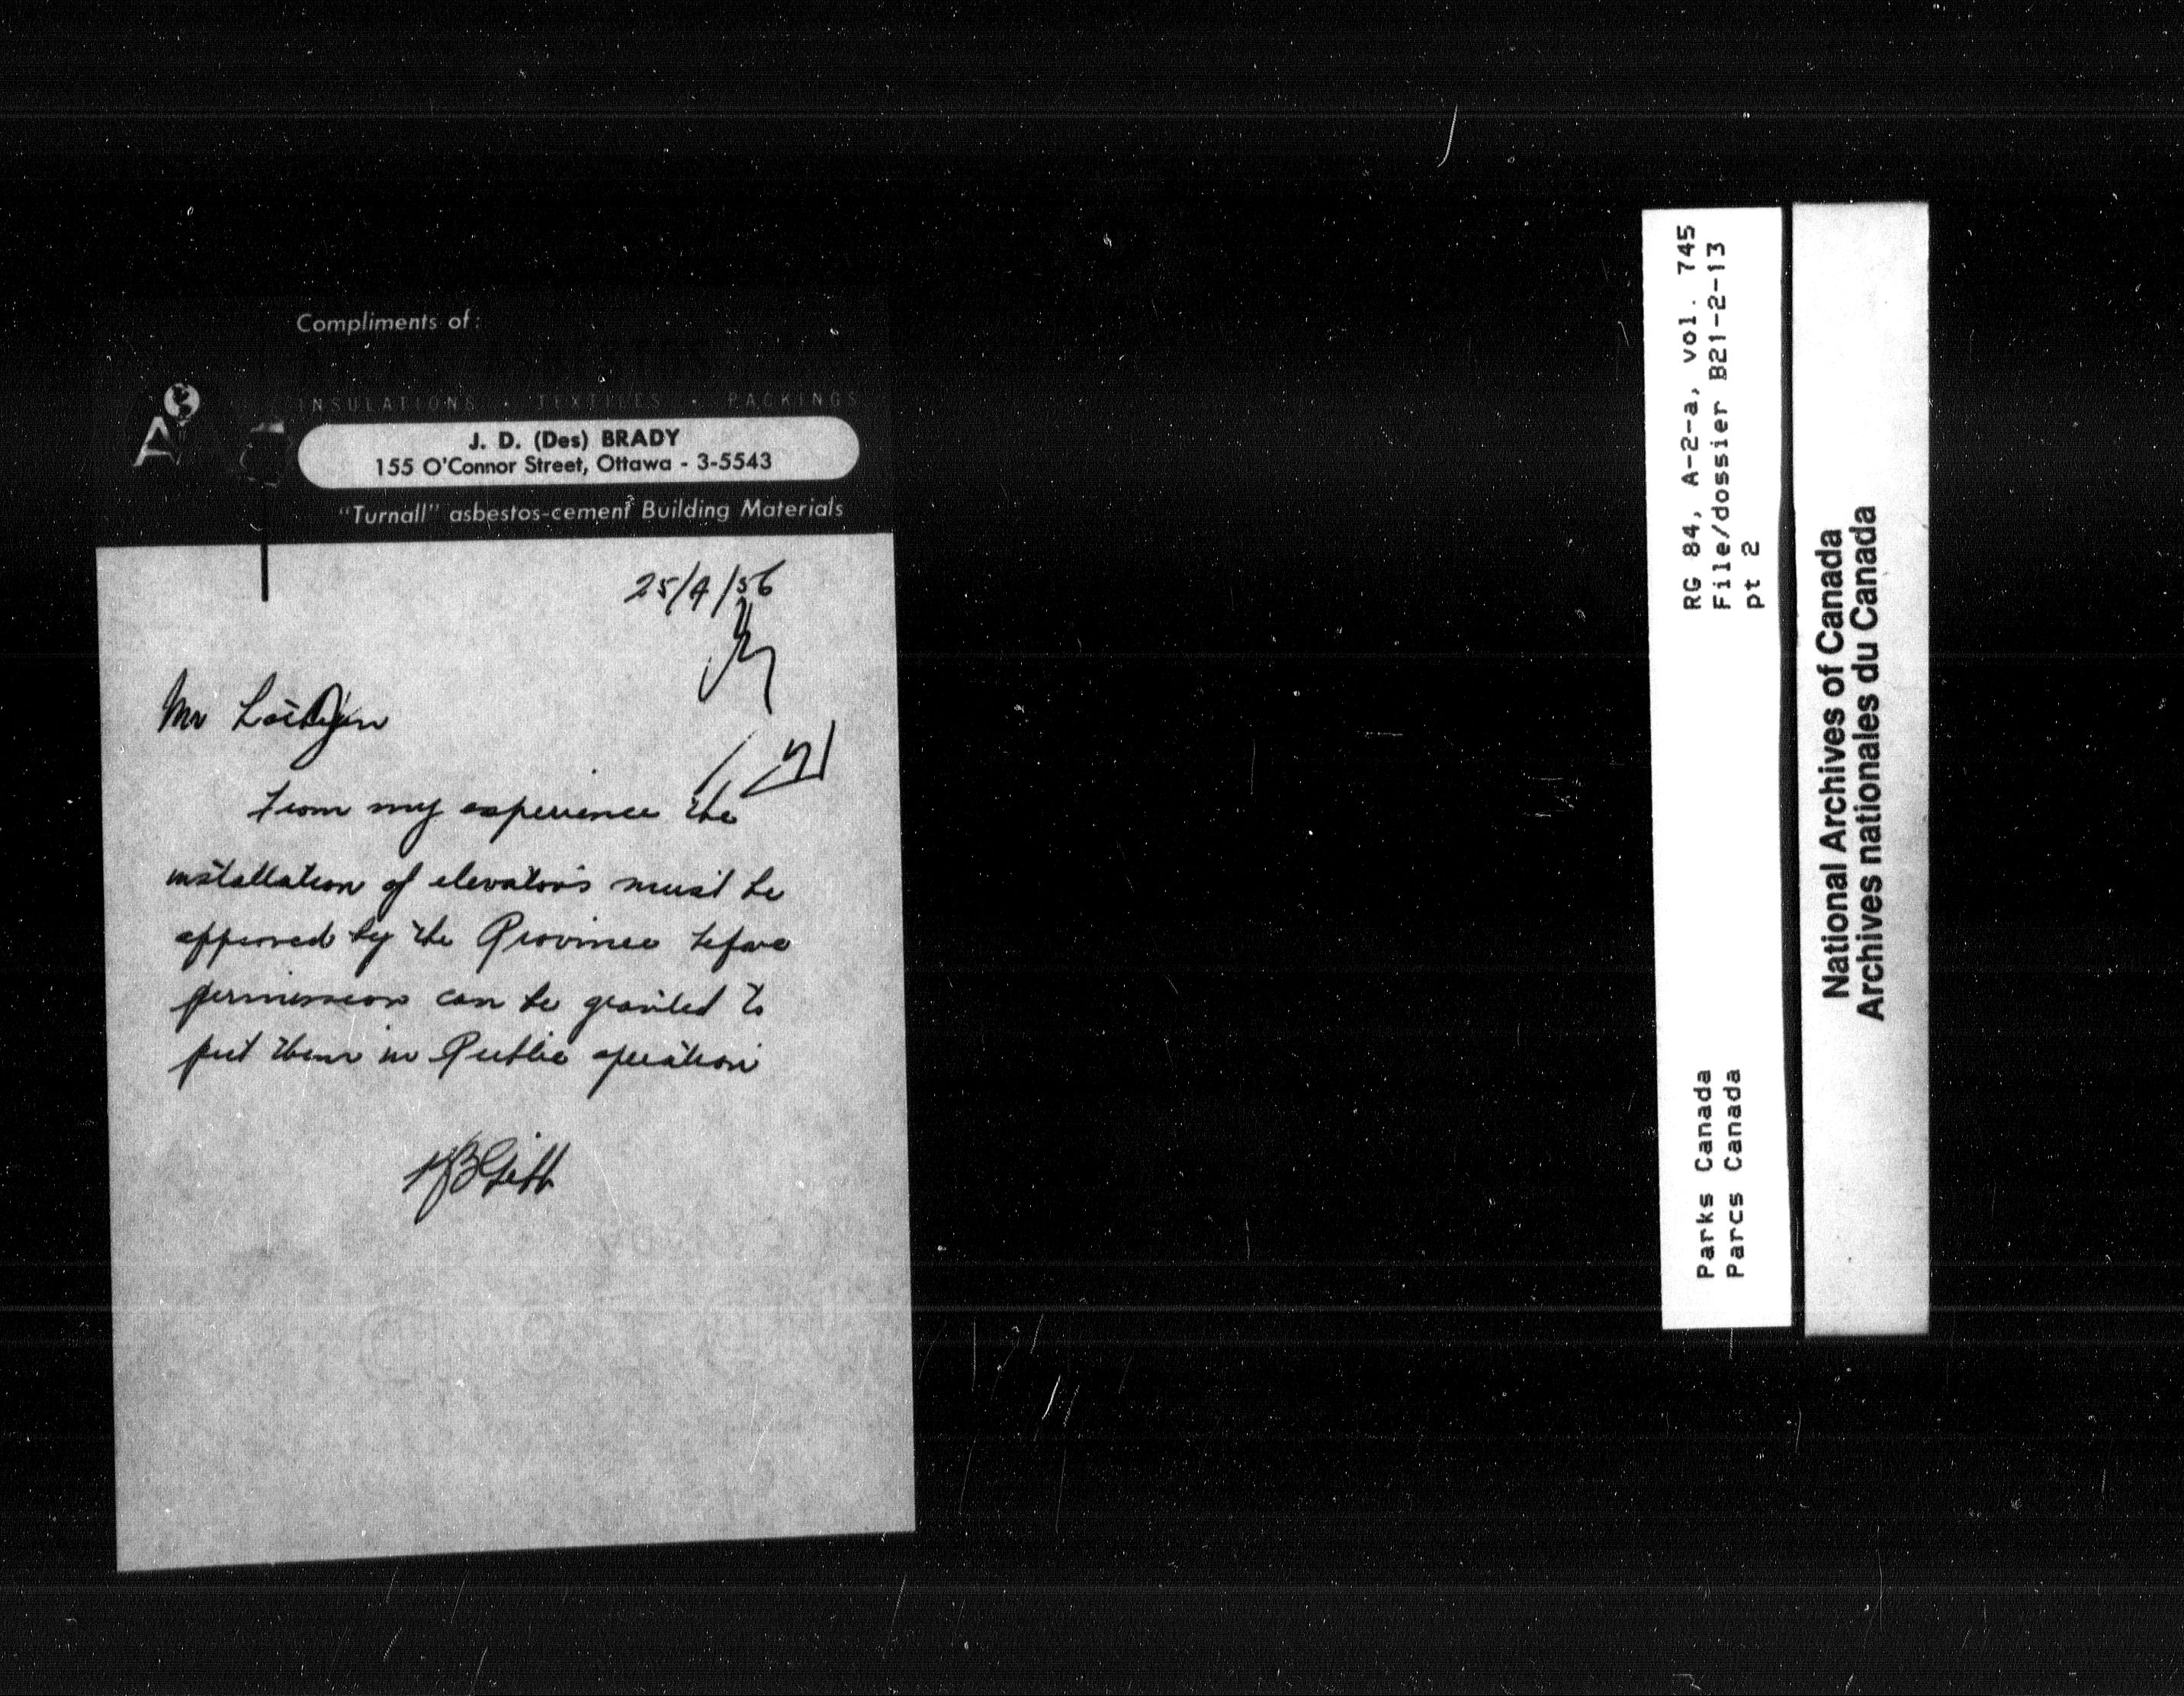 Compliments of:
INSULATIONS · TEXTILES · PACKINGS
J. D. (Des) BRADY
155 O'Connor Street, Ottawa - 3-5543
"Turnall" asbestos-cement Building Materials
25/4/56
Mr
From my experience the
installation of elevators must be
approved by the Province before
permission can be granted to
put them in Public operation
RG 84, A-2-a, vol. 745
File/dossier B21-2-13
pt 2
Parks Canada
Parcs Canada
National Archives of Canada
Archives nationales du Canada